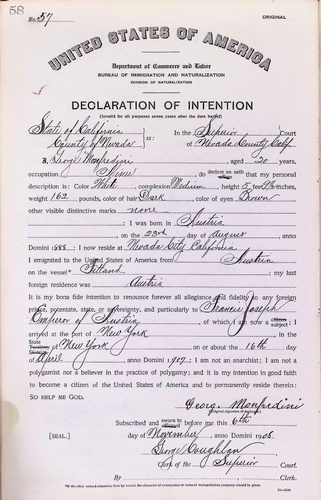 58
No. 57
ORIGINAL
UNITED STATES OF AMERICA
Department of Commerce and Labor
BUREAU OF IMMIGRATION AND NATURALIZATION
DIVISION OF NATURALIZATION
DECLARATION OF INTENTION
(Invalid for all purposes seven years after the date hereof)
State of California
County of Nevada ss: In the Superior Court
of Nevada County Calif
I, George Manfredini, aged 20 years,
occupation Miner, do declare on oath that my personal
description is: Color White, complexion Medium, height 5 feet inches,
weight 162 pounds, color of hair Dark, color of eyes Brown
other visible distinctive marks none
I was born in Austria
, on the 23rd day of August, anno
Domini 1888; I now reside at Nevada City California
I emigrated to the United States of America from Austria
on the vessel ; my last
foreign residence was Austria
It is my bona fide intention to renounce forever all allegiance and fidelity to any foreign
prince, potentate, state, or sovereignty, and particularly to Francis Joseph
Emperor of Austria, of which I am now a subject; I
arrived at the port of New York, in the
State of New York on or about the 16th day
of April, anno Domini 1907; I am not an anarchist; I am not a
polygamist nor a believer in the practice of polygamy; and it is my intention in good faith
to become a citizen of the United States of America and to permanently reside therein:
SO HELP ME GOD.
Georg. Manfredini
(Original signature of declarant)
Subscribed and sworn to before me this 6th
[SEAL.] day of November, anno Domini 1908
George Coughlan
Clerk of the Superior Court.
By , Clerk.